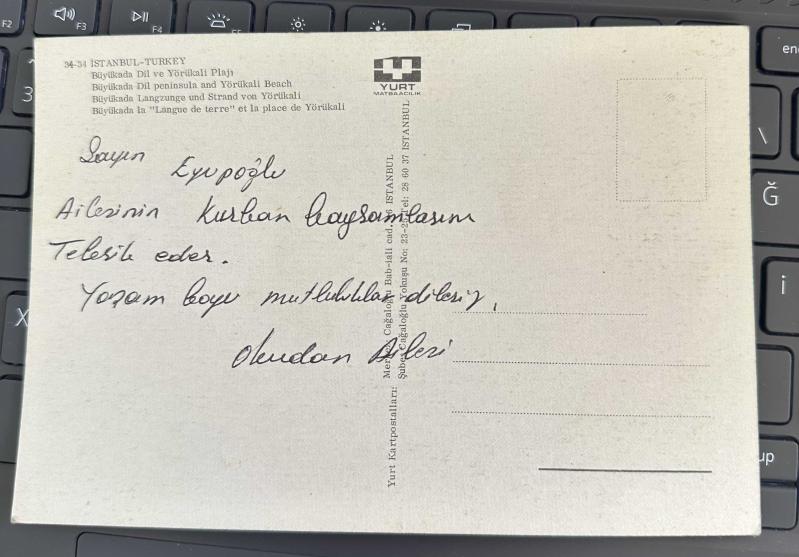 34-34 İSTANBUL-TURKEY
Büyükada Dil ve Yörükali Plajı
Büyükada Dil peninsula and Yörükali Beach
Büyükada Langzunge und Strand von Yörükali
Büyükada la "Langue de terre" et la place de Yörükali
YURT
MATBAACILIK
Sayın Eyupoğlu
Ailesinin Kurban bayramlarını
Tebrik eder.
Yaşam boyu mutluluklar dileriz.
Okudan Ailesi
Yurt Kartpostalları:
Merkez: Cağaloğlu Bab-ıali cad. İSTANBUL
Şube: Cağaloğlu Yokuşu No: 23-2 Tel: 28 60 37 İSTANBUL
F2
F3
F4
F5
3
X
\
Ğ
i
up